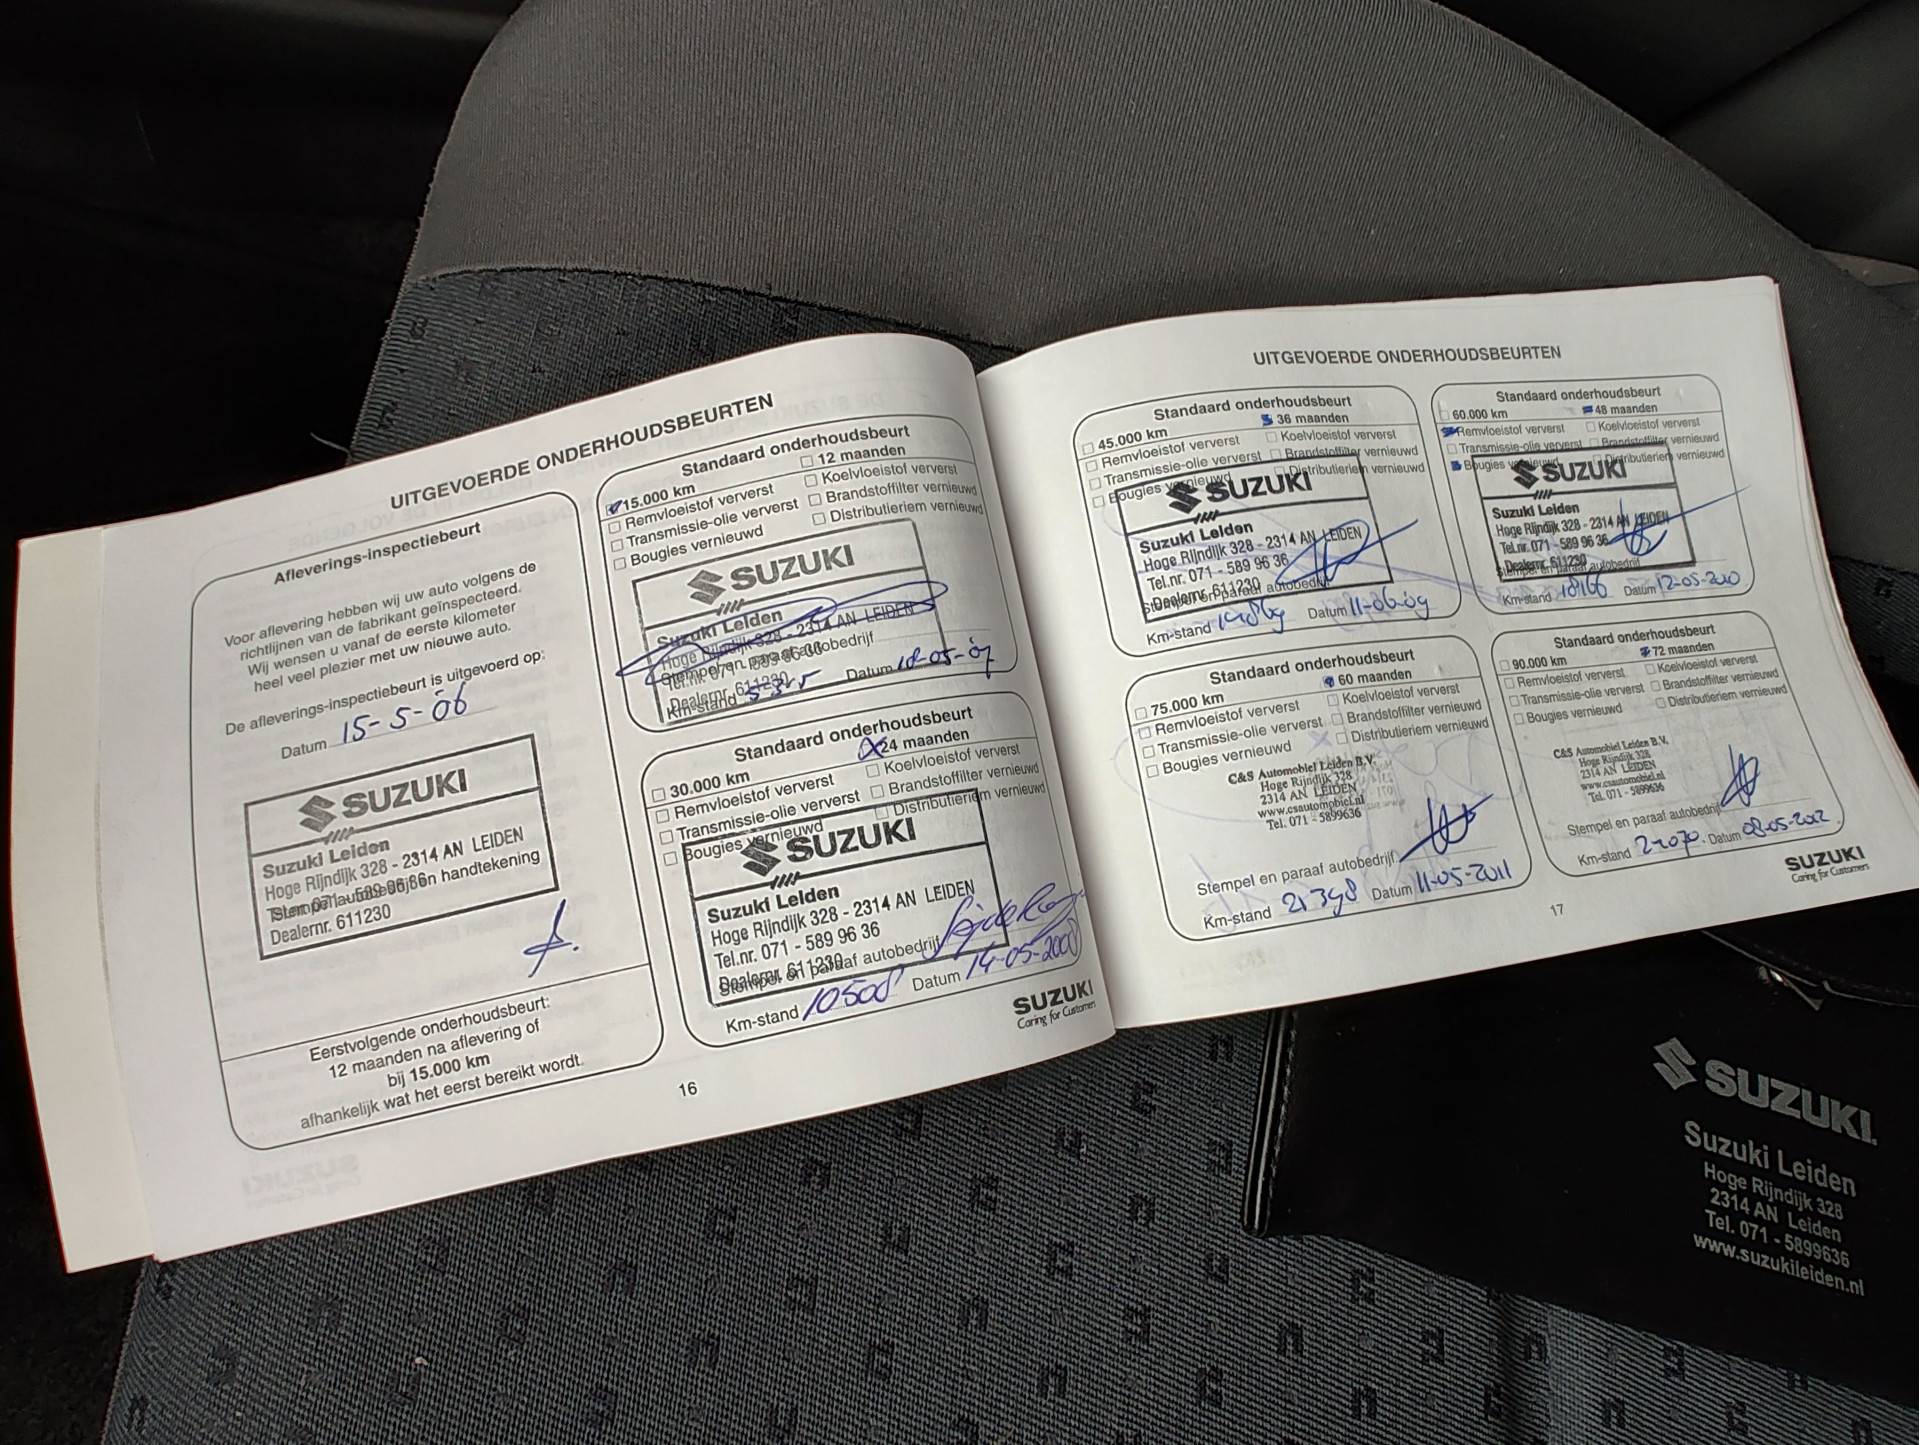 UITGEVOERDE ONDERHOUDSBEURTEN
Afleverings-inspectiebeurt
Voor aflevering hebben wij uw auto volgens de
richtlijnen van de fabrikant geïnspecteerd.
Wij wensen u vanaf de eerste kilometer
heel veel plezier met uw nieuwe auto.
De afleverings-inspectiebeurt is uitgevoerd op:
Datum 15-5-06
SUZUKI
Suzuki Leiden
Hoge Rijndijk 328 - 2314 AN LEIDEN
Tel.nr. 071 - 589 96 36
Stempel autobedrijf en handtekening
Dealernr. 611230
Eerstvolgende onderhoudsbeurt:
12 maanden na aflevering of
bij 15.000 km
afhankelijk wat het eerst bereikt wordt.
Standaard onderhoudsbeurt
15.000 km 12 maanden
Remvloeistof ververst Koelvloeistof ververst
Transmissie-olie ververst Brandstoffilter vernieuwd
Bougies vernieuwd Distributieriem vernieuwd
SUZUKI
Suzuki Leiden
Hoge Rijndijk 328 - 2314 AN LEIDEN
Tel.nr. 071 - 589 96 36
Stempel en paraaf autobedrijf
Dealernr. 611230
Km-stand Datum 10-05-07
Standaard onderhoudsbeurt
30.000 km 24 maanden
Remvloeistof ververst Koelvloeistof ververst
Transmissie-olie ververst Brandstoffilter vernieuwd
Bougies vernieuwd Distributieriem vernieuwd
SUZUKI
Suzuki Leiden
Hoge Rijndijk 328 - 2314 AN LEIDEN
Tel.nr. 071 - 589 96 36
Dealernr. 611230
Stempel en paraaf autobedrijf
Km-stand 10508 Datum 14-05-2008
SUZUKI
Caring for Customers
16
UITGEVOERDE ONDERHOUDSBEURTEN
Standaard onderhoudsbeurt
45.000 km 36 maanden
Remvloeistof ververst Koelvloeistof ververst
Transmissie-olie ververst Brandstoffilter vernieuwd
Bougies vernieuwd Distributieriem vernieuwd
SUZUKI
Suzuki Leiden
Hoge Rijndijk 328 - 2314 AN LEIDEN
Tel.nr. 071 - 589 96 36
Dealernr. 611230
Stempel en paraaf autobedrijf
Km-stand Datum 11-06-09
Standaard onderhoudsbeurt
60.000 km 48 maanden
Remvloeistof ververst Koelvloeistof ververst
Transmissie-olie ververst Brandstoffilter vernieuwd
Bougies vernieuwd Distributieriem vernieuwd
SUZUKI
Suzuki Leiden
Hoge Rijndijk 328 - 2314 AN LEIDEN
Tel.nr. 071 - 589 96 36
Dealernr. 611230
Stempel en paraaf autobedrijf
Km-stand 18166 Datum 12-05-2010
Standaard onderhoudsbeurt
75.000 km 60 maanden
Remvloeistof ververst Koelvloeistof ververst
Transmissie-olie ververst Brandstoffilter vernieuwd
Bougies vernieuwd Distributieriem vernieuwd
C&S Automobiel Leiden B.V.
Hoge Rijndijk 328
2314 AN LEIDEN
www.csautomobiel.nl
Tel. 071 - 5899636
Stempel en paraaf autobedrijf
Km-stand 21398 Datum 11-05-2011
Standaard onderhoudsbeurt
90.000 km 72 maanden
Remvloeistof ververst Koelvloeistof ververst
Transmissie-olie ververst Brandstoffilter vernieuwd
Bougies vernieuwd Distributieriem vernieuwd
C&S Automobiel Leiden B.V.
Hoge Rijndijk 328
2314 AN LEIDEN
www.csautomobiel.nl
Tel. 071 - 5899636
Stempel en paraaf autobedrijf
Km-stand Datum 08-05-2012
SUZUKI
Caring for Customers
17
SUZUKI
Suzuki Leiden
Hoge Rijndijk 328
2314 AN Leiden
Tel. 071 - 5899636
www.suzukileiden.nl